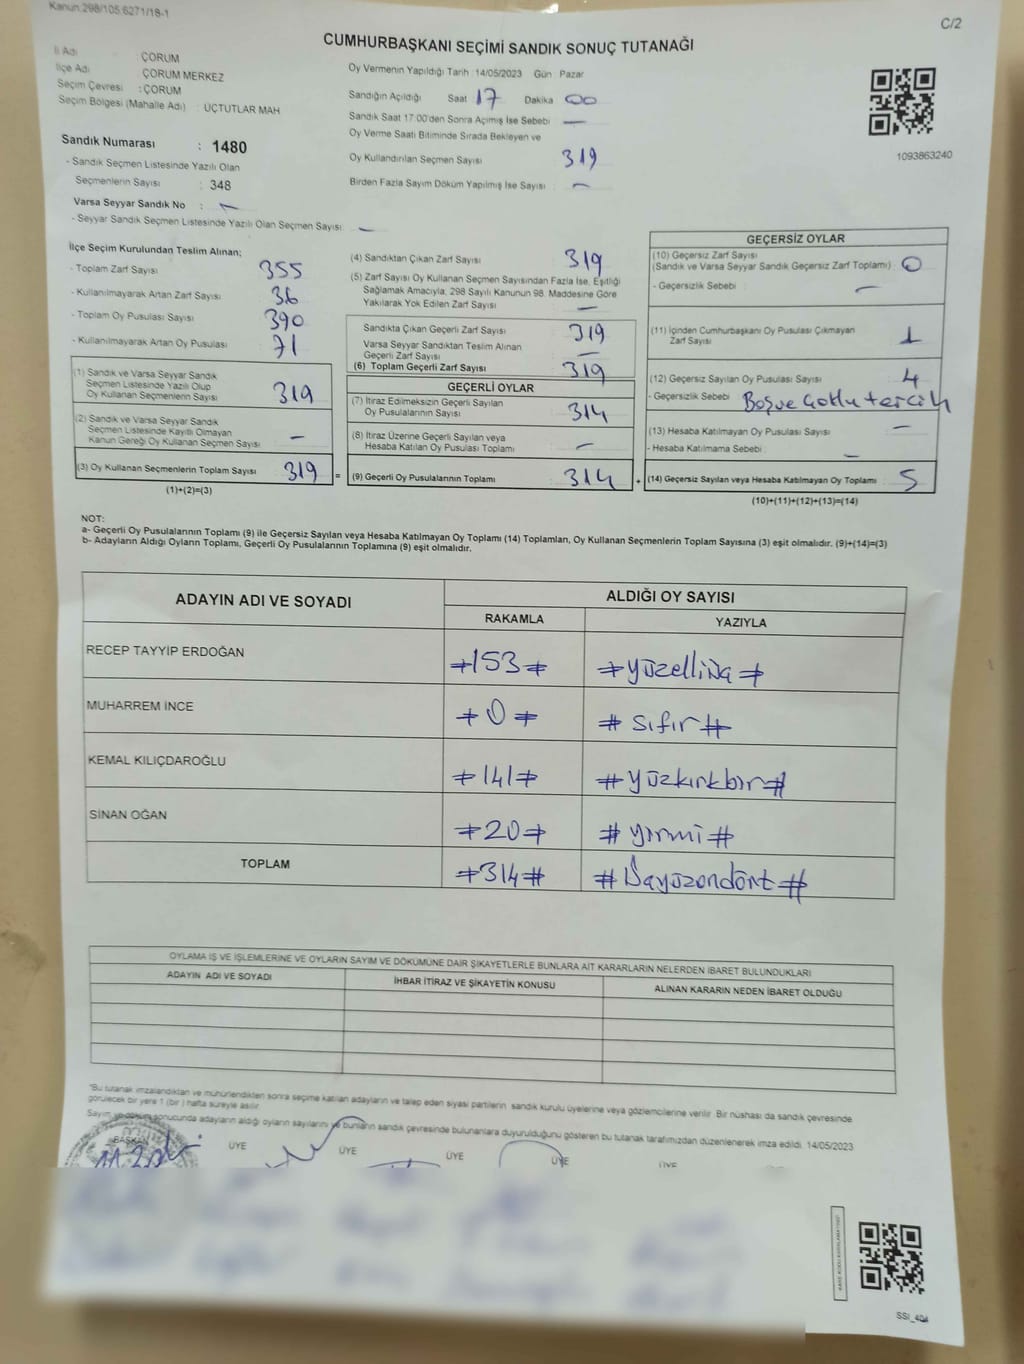 Kanun.298/105.6271/18-1
C/2
CUMHURBAŞKANI SEÇİMİ SANDIK SONUÇ TUTANAĞI
İl Adı : ÇORUM
İlçe Adı : ÇORUM MERKEZ
Seçim Çevresi : ÇORUM
Seçim Bölgesi (Mahalle Adı) : ÜÇTUTLAR MAH
Sandık Numarası : 1480
- Sandık Seçmen Listesinde Yazılı Olan
Seçmenlerin Sayısı : 348
Varsa Seyyar Sandık No : -
- Seyyar Sandık Seçmen Listesinde Yazılı Olan Seçmen Sayısı: -
Oy Vermenin Yapıldığı Tarih : 14/05/2023 Gün : Pazar
Sandığın Açıldığı Saat 17 Dakika 00
Sandık Saat 17:00'den Sonra Açılmış İse Sebebi : -
Oy Verme Saati Bitiminde Sırada Bekleyen ve
Oy Kullandırılan Seçmen Sayısı : 319
Birden Fazla Sayım Döküm Yapılmış İse Sayısı : -
1093863240
İlçe Seçim Kurulundan Teslim Alınan;
- Toplam Zarf Sayısı : 355
- Kullanılmayarak Artan Zarf Sayısı : 36
- Toplam Oy Pusulası Sayısı : 390
- Kullanılmayarak Artan Oy Pusulası : 71
(1) Sandık ve Varsa Seyyar Sandık
Seçmen Listesinde Yazılı Olup
Oy Kullanan Seçmenlerin Sayısı : 319
(2) Sandık ve Varsa Seyyar Sandık
Seçmen Listesinde Kayıtlı Olmayan
Kanun Gereği Oy Kullanan Seçmen Sayısı : -
(3) Oy Kullanan Seçmenlerin Toplam Sayısı : 319 =
(1)+(2)=(3)
(4) Sandıktan Çıkan Zarf Sayısı : 319
(5) Zarf Sayısı Oy Kullanan Seçmen Sayısından Fazla İse, Eşitliği
Sağlamak Amacıyla, 298 Sayılı Kanunun 98. Maddesine Göre
Yakılarak Yok Edilen Zarf Sayısı : -
Sandıkta Çıkan Geçerli Zarf Sayısı : 319
Varsa Seyyar Sandıktan Teslim Alınan
Geçerli Zarf Sayısı : -
(6) Toplam Geçerli Zarf Sayısı : 319
GEÇERLİ OYLAR
(7) İtiraz Edilmeksizin Geçerli Sayılan
Oy Pusulalarının Sayısı : 314
(8) İtiraz Üzerine Geçerli Sayılan veya
Hesaba Katılan Oy Pusulası Toplamı : -
(9) Geçerli Oy Pusulalarının Toplamı : 314 +
GEÇERSİZ OYLAR
(10) Geçersiz Zarf Sayısı
(Sandık ve Varsa Seyyar Sandık Geçersiz Zarf Toplamı) : 0
- Geçersizlik Sebebi : -
(11) İçinden Cumhurbaşkanı Oy Pusulası Çıkmayan
Zarf Sayısı : 1
(12) Geçersiz Sayılan Oy Pusulası Sayısı : 4
- Geçersizlik Sebebi : Boş ve Çoklu tercih
(13) Hesaba Katılmayan Oy Pusulası Sayısı : -
- Hesaba Katılmama Sebebi : -
(14) Geçersiz Sayılan veya Hesaba Katılmayan Oy Toplamı : 5
(10)+(11)+(12)+(13)=(14)
NOT:
a- Geçerli Oy Pusulalarının Toplamı (9) ile Geçersiz Sayılan veya Hesaba Katılmayan Oy Toplamı (14) Toplamları, Oy Kullanan Seçmenlerin Toplam Sayısına (3) eşit olmalıdır. (9)+(14)=(3)
b- Adayların Aldığı Oyların Toplamı, Geçerli Oy Pusulalarının Toplamına (9) eşit olmalıdır.
ADAYIN ADI VE SOYADI ALDIĞI OY SAYISI
RAKAMLA YAZIYLA
RECEP TAYYİP ERDOĞAN #153# #yüzelliüç#
MUHARREM İNCE #0# #sıfır#
KEMAL KILIÇDAROĞLU #141# #yüzkırkbir#
SİNAN OĞAN #20# #yirmi#
TOPLAM #314# #Üçyüzondört#
OYLAMA İŞ VE İŞLEMLERİNE VE OYLARIN SAYIM VE DÖKÜMÜNE DAİR ŞİKAYETLERLE BUNLARA AİT KARARLARIN NELERDEN İBARET BULUNDUKLARI
ADAYIN ADI VE SOYADI İHBAR İTİRAZ VE ŞİKAYETİN KONUSU ALINAN KARARIN NEDEN İBARET OLDUĞU
*Bu tutanak imzalandıktan ve mühürlendikten sonra seçime katılan adayların ve talep eden siyasi partilerin sandık kurulu üyelerine veya gözlemcilerine verilir. Bir nüshası da sandık çevresinde
görülecek bir yere 1 (bir) hafta süreyle asılır.
Sayım ve döküm sonucunda adayların aldığı oyların sayılarını ve bunların sandık çevresinde bulunanlara duyurulduğunu gösteren bu tutanak tarafımızdan düzenlenerek imza edildi. 14/05/2023
BAŞKAN ÜYE ÜYE ÜYE ÜYE ÜYE
SSI_404